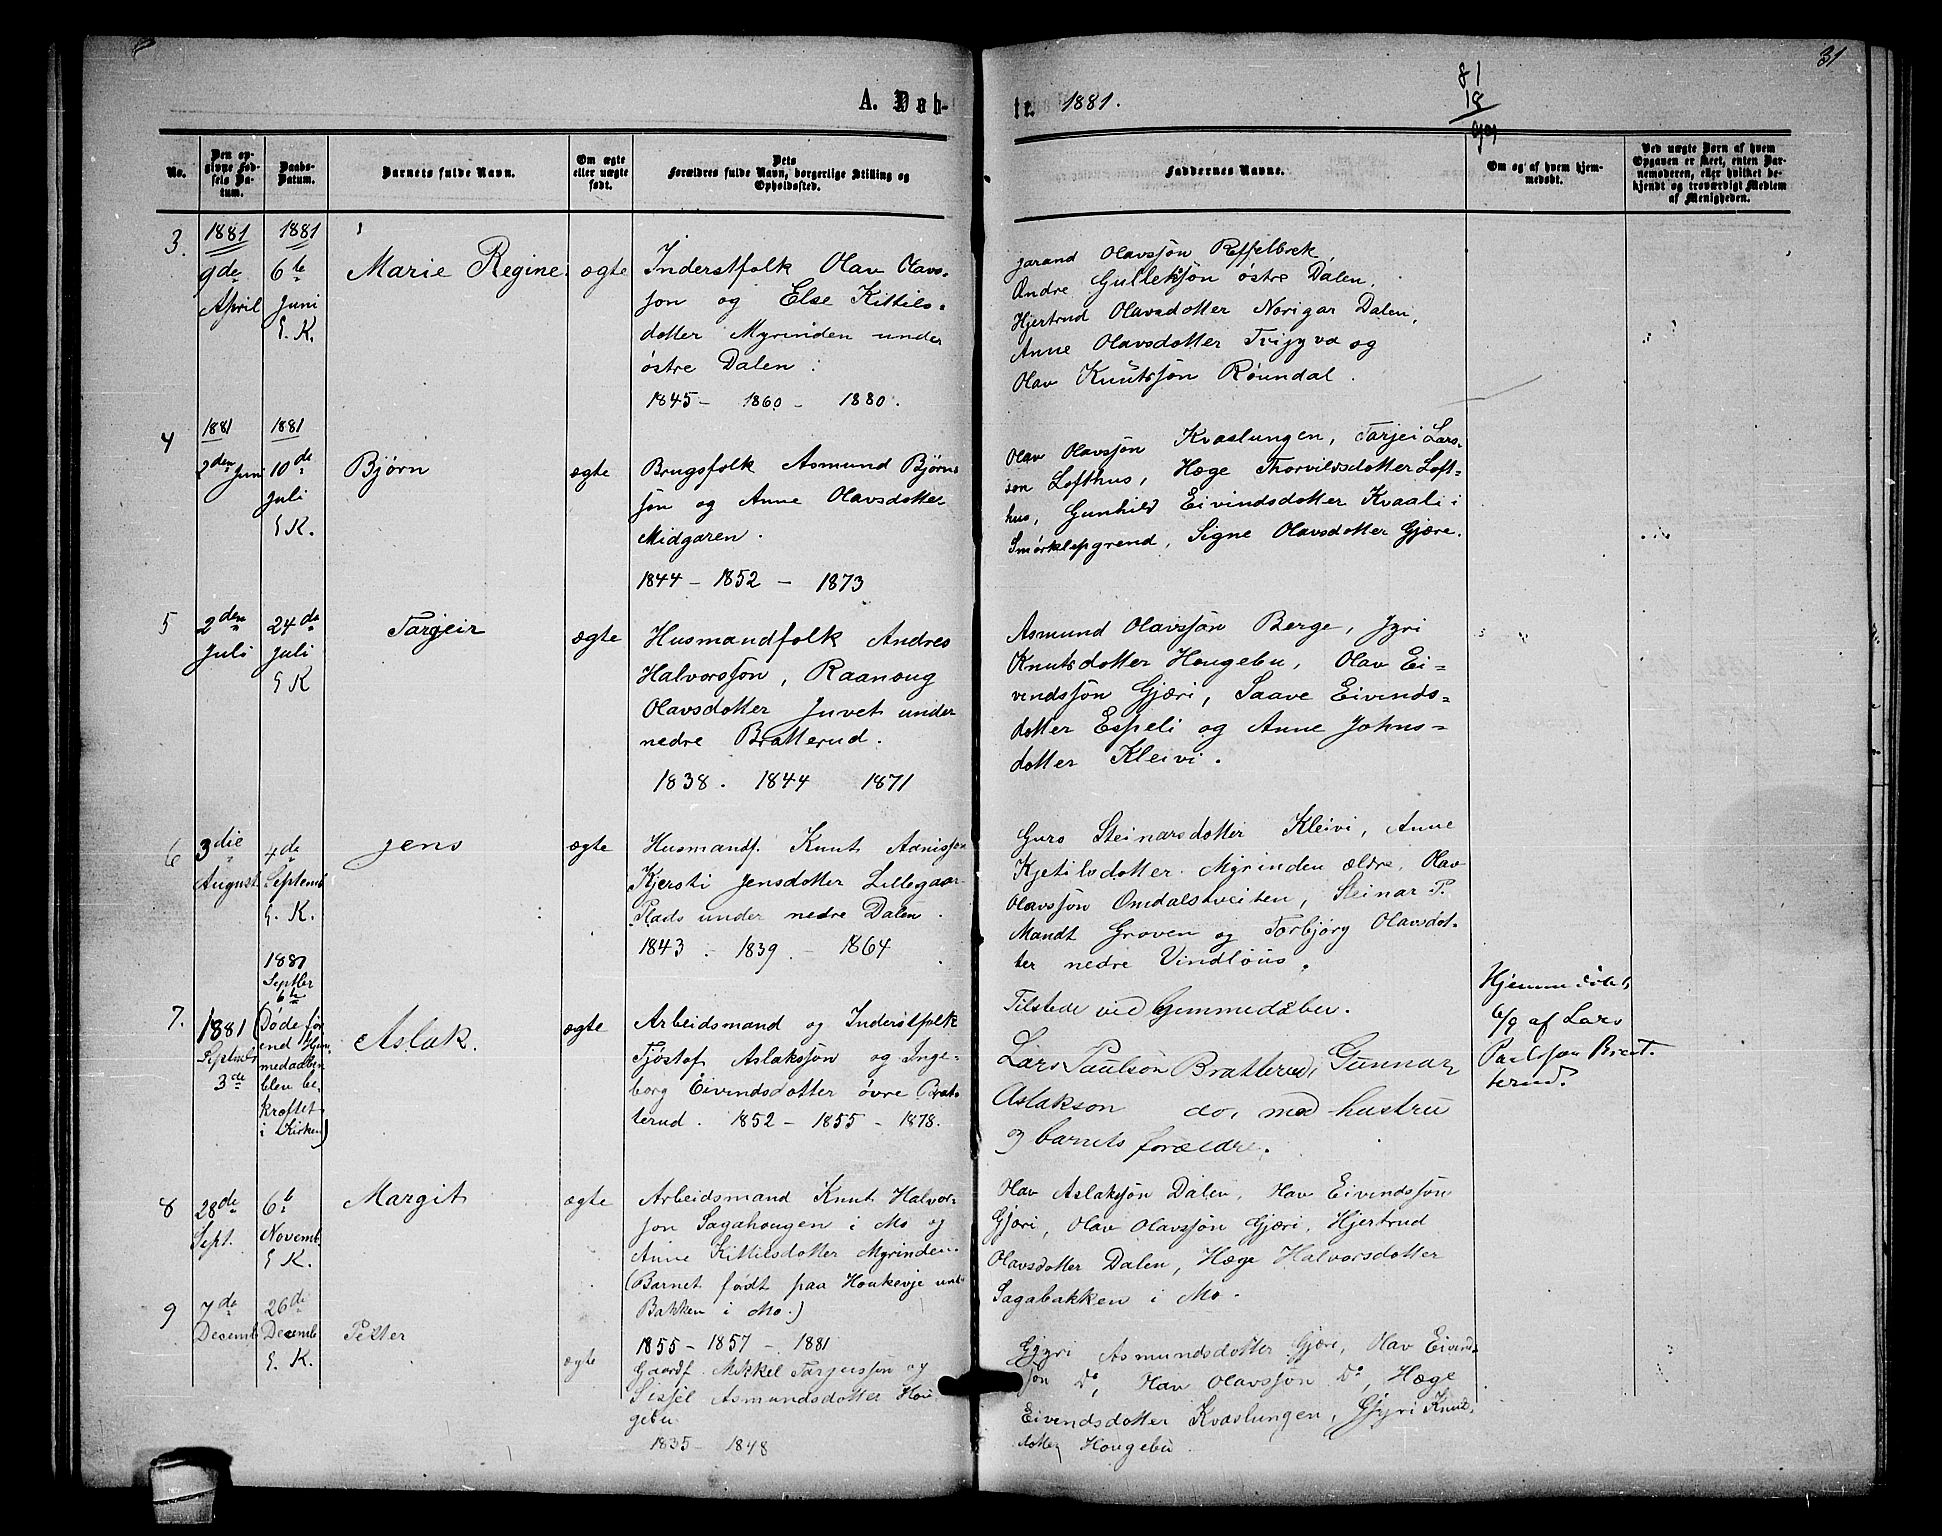 31
81
18
A. Døb-
te. 1881.
No.
Den op-
givne Fød-
sels Da-
tum.
Daabs-
Datum.
Barnets fulde Navn.
Om ægte
eller uægte
født.
Dets
Forældres fulde Navn, borgerlige Stilling og
Opholdssted.
Faddernes Navne.
Om og af hvem hjem-
medøbt.
Ved uægte Børn af hvem
Opgaven er skeet, enten Bar-
nemoderen, eller hvilket be-
kjendt og troværdigt Medlem
af Menigheden.
3.
1881
9de
April
1881
6te
Juni
E. K.
Marie Regine.
ægte
Inderstfolk Olav Olavs-
søn og Else Kittils-
dotter Myrinden under
østre Dalen.
1845 - 1860 - 1880.
Jarand Olavssøn
Andre Gulleksøn østre Dalen,
Hjertrud Olavsdotter Norigar Dalen,
Anne Olavsdotter og
Olav Knutssøn Røundal.
4
1881
2den Juni
1881
10de
Juli
E K.
Bjørn
ægte
Brugsfolk Asmund Bjørn-
søn og Anne Olavsdotter
Midgaren.
1844 - 1852 - 1873
Olav Olavssøn Kvaslungen, Tarjei Lars-
søn Lofthus, Hæge Thorvildsdotter Loft-
hus, Gunhild Eivindsdotter Kvaali i
Smørklepgrend, Signe Olavsdotter Gjære.
5
2den
Juli
24de
Juli
E K
Targeir
ægte
Husmandfolk Andres
Halvorssøn, Raanoug
Olavsdotter Juvet under
nedre Bratterud.
1838. 1844 1871
Asmund Olavssøn Berge, Jyri
Knutsdotter Hougebu, Olav Ei-
vindssøn Gjæri, Saave Eivinds-
dotter Espeli og Anne Johns-
dotter Kleivi.
6
3die
August
4de
Septemb
E. K.
Jens
ægte
Husmandf. Knut Adnissøn
Kjersti Jensdotter Lillegaar-
Plads under nedre Dalen.
1843 - 1839 - 1864
Guro Steinarsdotter Kleivi, Anne
Kjetilsdotter Myrinden ældre, Olav
Olavssøn Omdalstveiten, Steinar P.
Mandt Groven og Torbjørg Olavsdot-
ter nedre Vindlous.
7.
1881
Septbr
3de
1881
Septber
6te
(Døde før
end Hjem-
medaaben
blev be-
kræftet
i Kirken)
Aslak.
ægte
Arbeidsmand og Inderstfolk
Tjøstof Aslakssøn og Inge-
borg Eivindsdotter øvre Brat-
terud. 1852 - 1855 - 1878.
Tilstede ved Hjemmedåben.
Lars Paulson Bratterud, Gunnar
Aslakson do, med hustru
og barnets forældre.
Hjemmedøbt
6/9 af Lars
Paulssøn Brat-
terud.
8
28de
Sept.
6te
Novemb.
E K.
Margit
ægte
Arbeidsmand Knut Halvor-
søn Sagahougen i Mo og
Anne Kittilsdotter Myrinden.
(Barnet født paa Houkevje und.
Bakken i Mo.)
1855 - 1857 - 1881
Olav Aslakssøn Dalen, Olav Eivindssøn
Gjæri, Olav Olavssøn Gjæri, Hjertrud
Olavsdotter Dalen, Hæge Halvorsdotter
Sagabakken i Mo.
9
7de
Decemb
26de
Decemb
E. K.
Petter
ægte
Gaardf. Mikkel Tarjeissøn og
Sissel Asmundsdotter Hou-
gebu
1835 - 1848
Gjyri Asmundsdotter Gjære, Olav Eivind-
søn Do, Olav Olavssøn Do, Hæge
Eivindsdotter Kvaslungen, Gjyri Knuts-
dotter Hougebu.